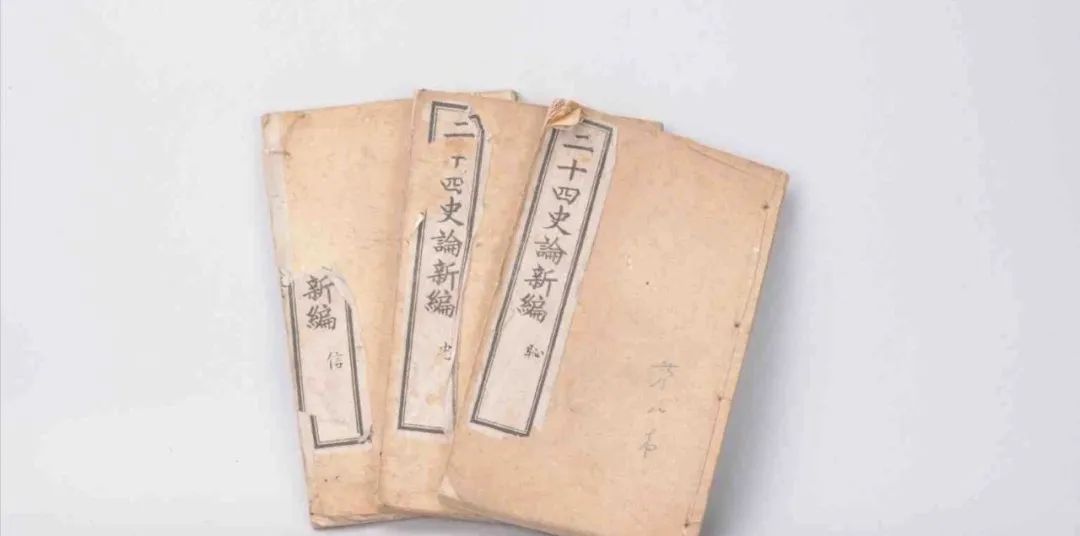 二十四史論新編
恥
第八本
二十四史論新編
忠
新編
信